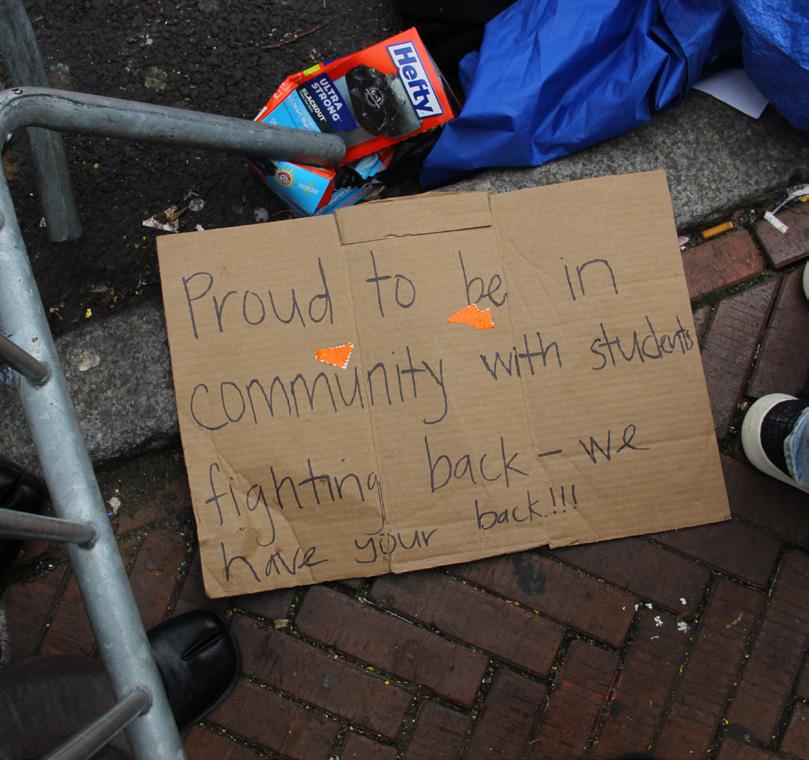 Hefty
ULTRA
STRONG
BLACKOUT
Proud to be in
community with students
fighting back – we
have your back!!!